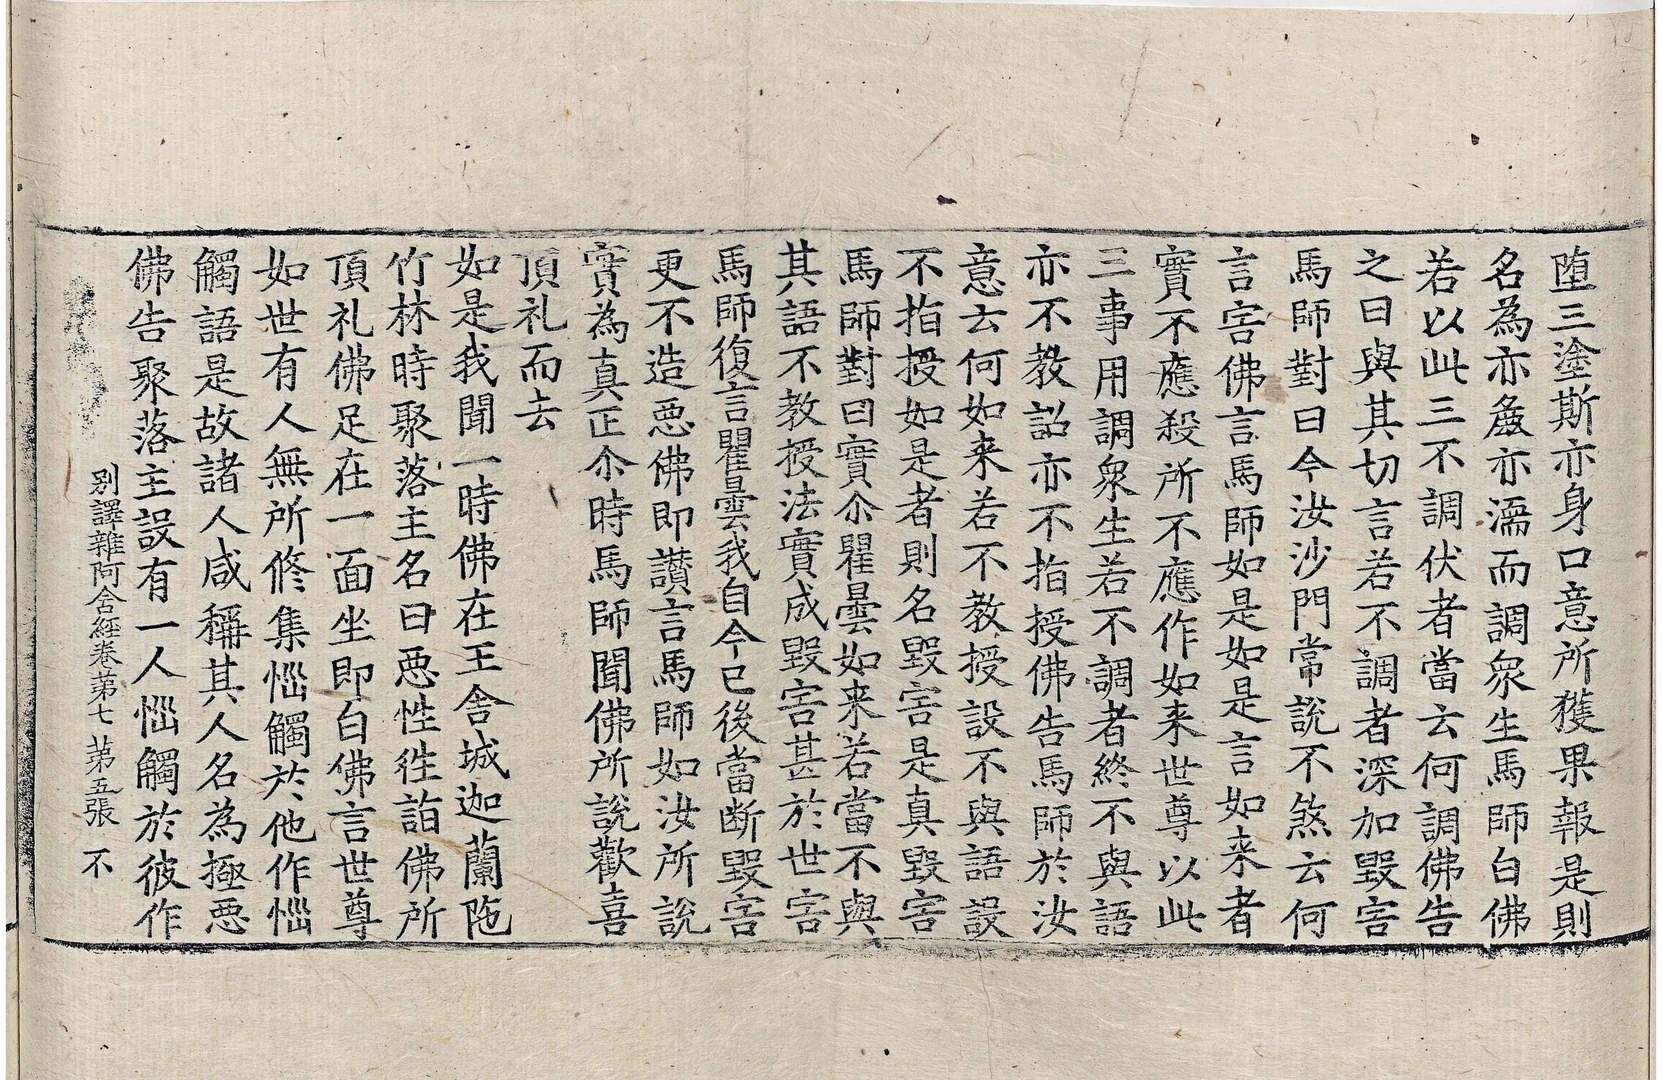 墮三塗斯亦身口意所獲果報是則
名為亦麁亦濡而調衆生馬師白佛
若以此三不調伏者當云何調佛告
之曰與其切言若不調者深加毀害
馬師對曰今汝沙門常說不煞云何
言害佛言馬師如是如是言如来者
實不應殺所不應作如来世尊以此
三事用調衆生若不調者終不與語
亦不教詔亦不指授佛告馬師於汝
意云何如来若不教授設不與語設
不指授如是者則名毀害是真毀害
馬師對曰實尒瞿曇如来若當不與
其語不教授法實成毀害甚於世害
馬師復言瞿曇我自今已後當断毀害
更不造惡佛即讃言馬師如汝所說
實為真正尒時馬師聞佛所說歡喜
頂礼而去
如是我聞一時佛在王舍城迦蘭陁
竹林時聚落主名曰惡性徃詣佛所
頂礼佛足在一面坐即白佛言世尊
如世有人無所修集惱觸於他作惱
觸語是故諸人咸稱其人名為極惡
佛告聚落主設有一人惱觸於彼作
別譯雜阿含經卷第七 第五張 不